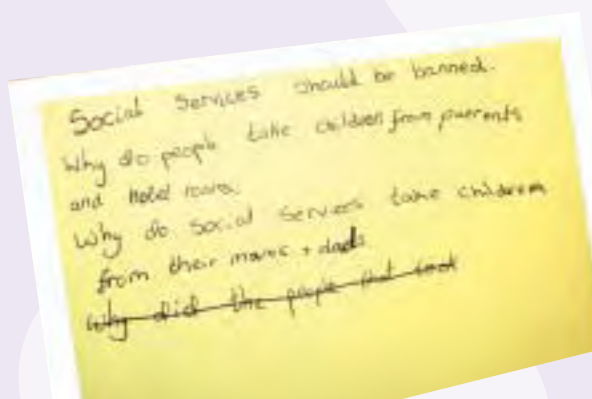 Social Services should be banned.
Why do people take children from parrents
and hotel rooms.
Why do Social Services take children
from their mams + dads
Why did the people that took